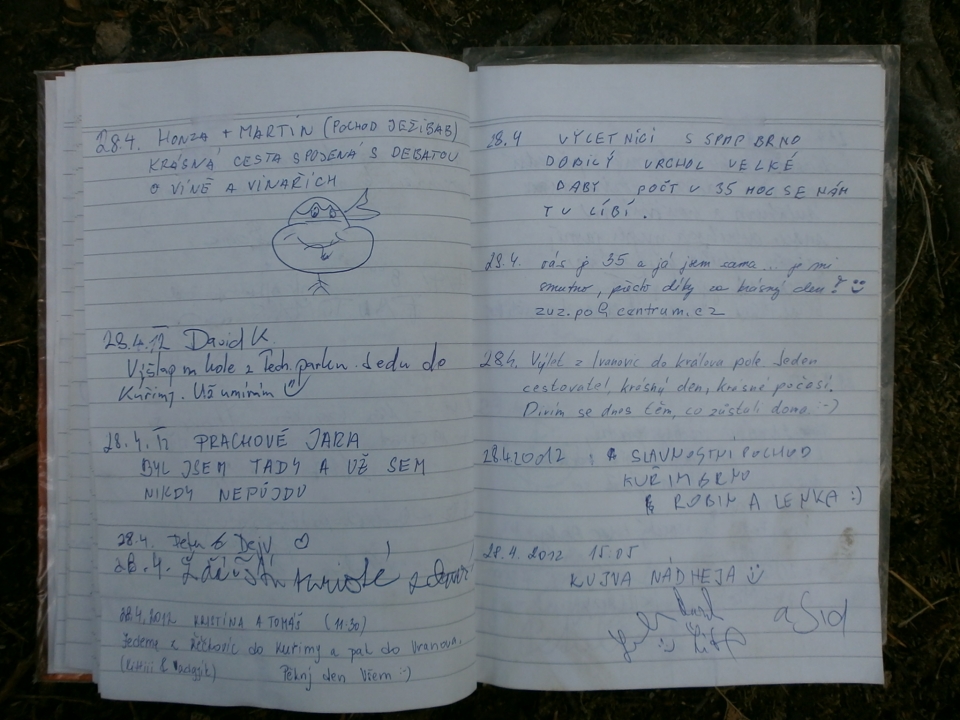 28.4. HONZA + MARTIN (POCHOD JEŽIBAB)
KRÁSNÁ CESTA SPOJENÁ S DEBATOU
O VÍNĚ A VINAŘÍCH
28.4.12 David K.
Výšlap na kole z Tech. parku. Jedu do
Kuřimy. Už umírám
28.4.12 PRACHOVÉ JARA
BYL JSEM TADY A UŽ SEM
NIKDY NEPŮJDU
28.4. Dejv
28.4. turisté
28.4.2012 KRISTÍNA A TOMÁŠ (11:30)
Jedeme z Řečkovic do Kuřimy a pak do Ivanova.
Pěkný den Všem :-)
28.4 VÝLETNÍCI S SPAP BRNO
DOBILÝ VRCHOL VELKÉ
BABY POČT U 35 MOC SE NÁM
TU LÍBÍ.
29.4. vás je 35 a já jsem sama... je mi
smutno, přesto díky za krásný den!
zuz.pol@centrum.cz
28.4. Výlet z Ivanovic do králova pole. Jeden
cestovatel, krásný den, krásné počasí.
Divím se dnes těm, co zůstali doma. :-)
28.4.2012 SLAVNOSTNÍ POCHOD
KUŘIM BRNO
ROBIN A LENKA :)
28.4.2012 15:05
KUJVA NÁDHEJA
a Sid